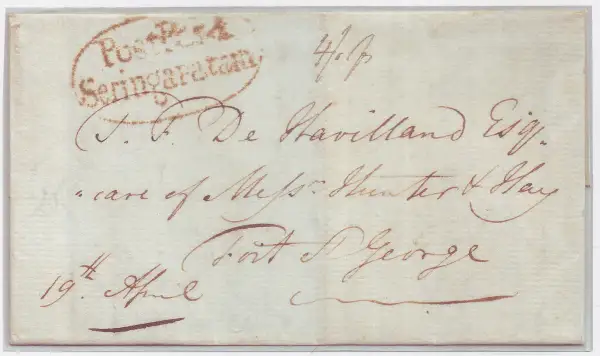 Post Paid
Seringapatam
T. F. De Havilland Esqr.
care of Messrs Hunter & Hay
Fort St George
19th April